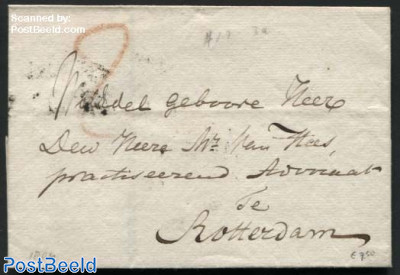 Scanned by:
PostBeeld.com
Geboore Heer
Den Heere Mr. Van Hees,
practiseerend Advocaat
Te
Rotterdam
PostBeeld